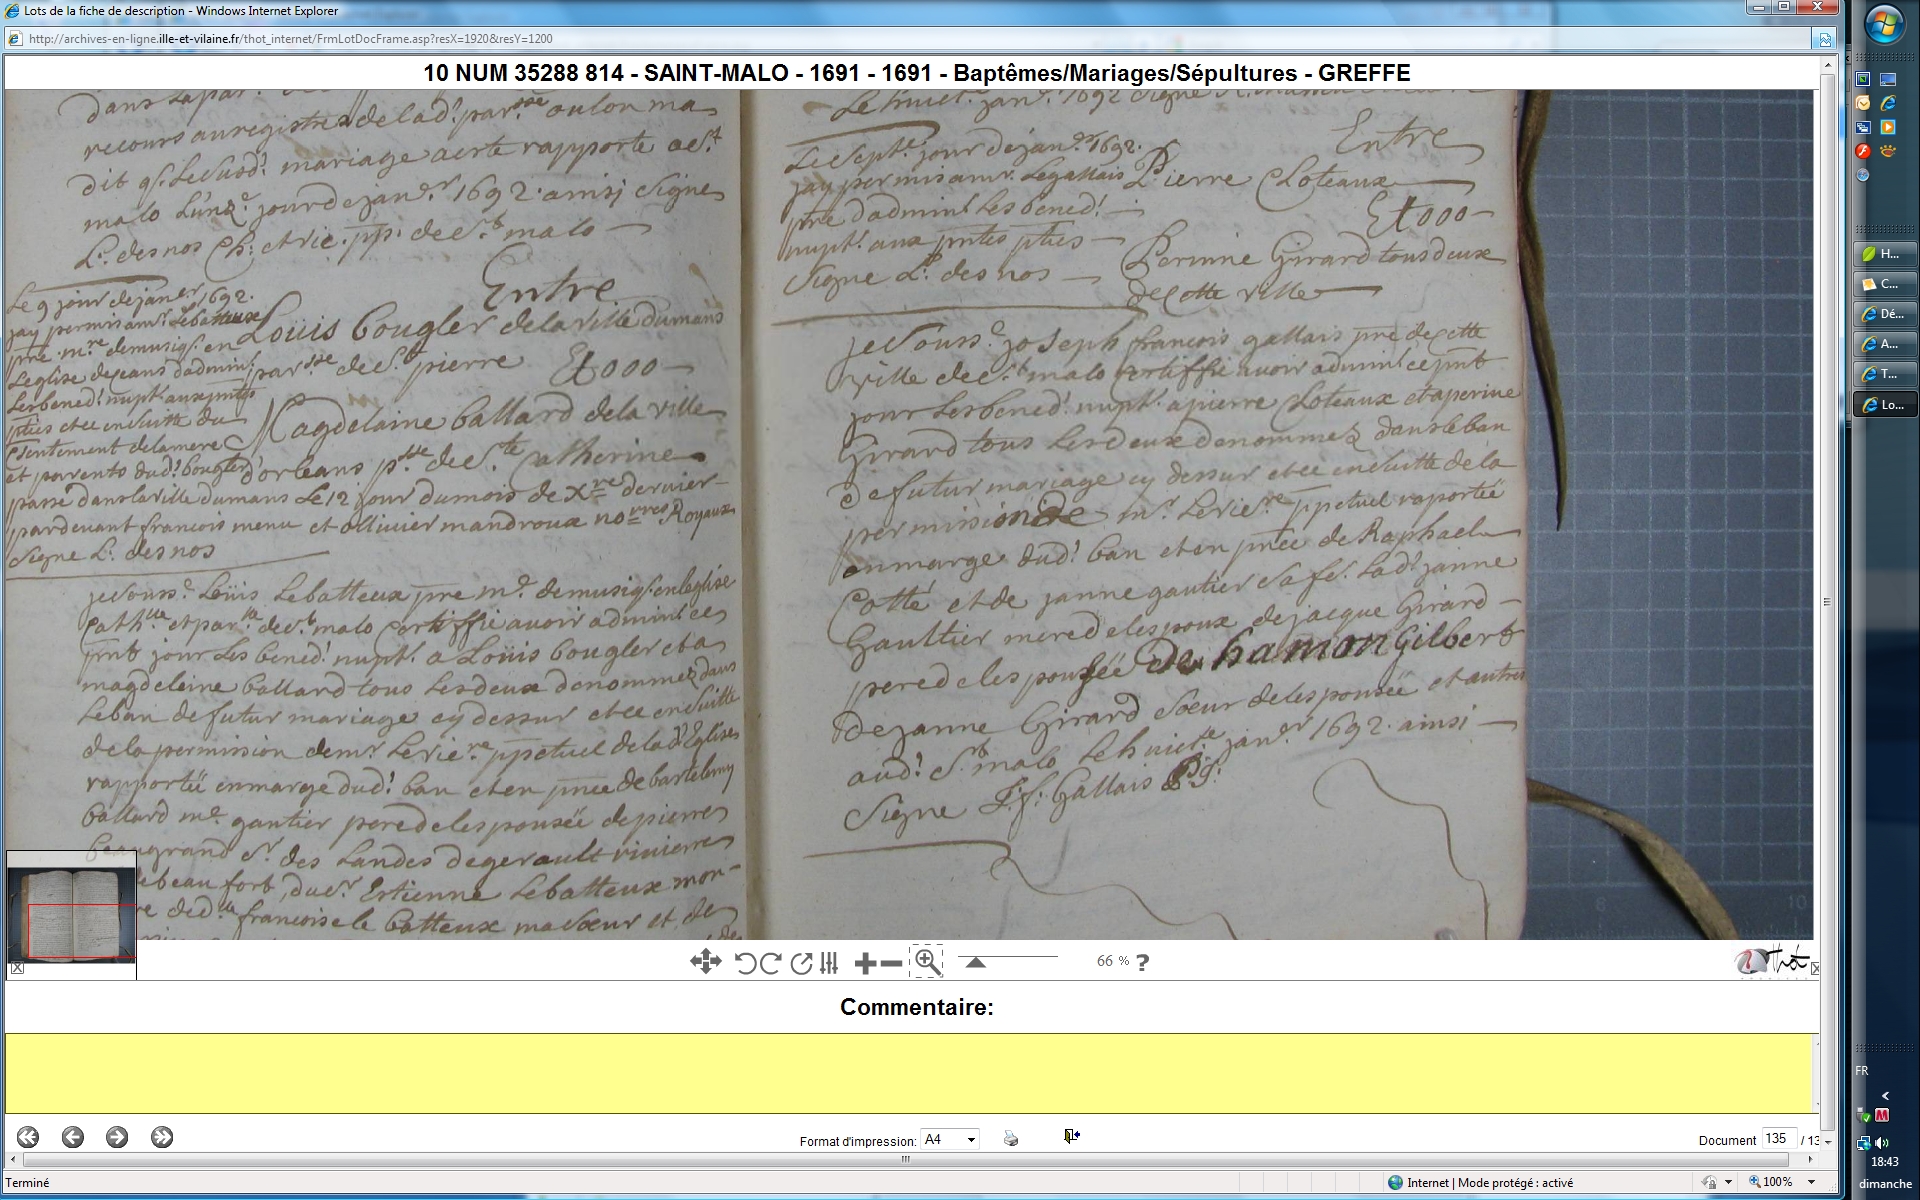 Lots de la fiche de description - Windows Internet Explorer
http://archives-en-ligne.ille-et-vilaine.fr/thot_internet/FrmLotDocFrame.asp?resX=1920&resY=1200
10 NUM 35288 814 - SAINT-MALO - 1691 - 1691 - Baptêmes/Mariages/Sépultures - GREFFE
dans la par.
recours au registre de lad. par.sse ou lon ma
dit q. le susd. mariage a este rapporte a St
malo jour de jan.r 1692 ainsi Signe
L. desnos Ch. et vic. pp. de St malo
Entre
Le 9 jour de jan.er 1692.
jay permis a mr. Lebatteux
pre mre de musiq. en
Leglise de ceans dadmin.
Les bened. nupt. aux pntes
pties et ce ensuitte du
Consentement de la mere
et parents dud. bougler
passé dans la ville du mans Le 12 jour du mois de Xbre dernier
par devant francois menu et ollivier mandroux no.res Royaux
Signe L. desnos
Louis bougler de la ville du mans
par.sse de St pierre
Et 000
Magdelaine ballard de la ville
d'orleans p.sse de Ste Catherine
je Sous.e Loüis Lebatteux pre m.e de musiq. en leglise
Cath.lle et par.lle de St malo Certiffie avoir admin. ce
pnt jour Les bened. nupt. a Loüis bougler et a
magdeleine ballard tous Les deux denommez dans
Le ban de futur mariage cy dessur et ce ensuitte
de la permission de mr. Le vic.re ppetuel de lad. Eglise
rapportée en marge dud. ban et en pnce de bartelemy
ballard me gautier pere de lespousée de pierre
beaugrand Sr. des Landes degerault riviere
de beaufort, du Sr. Estienne Lebatteux mon
francoise le batteux ma Sœur et de
Le huict.e jan.r 1692 Signe
Entre
Le sept.e jour de jan.er 1692.
jay permis a mr. Legallais
pre dadmin. Les bened.
nupt. aux pntes pties
Signe L. desnos
Pierre Cloteaux
Et 000
Perinne Girard tous deux
de cette ville
je Sous.e joseph francois gallais pre de cette
ville de St malo Certiffie avoir admin. ce pnt
jour Les bened. nupt. a pierre Cloteaux et a perine
Girard tous Les deux denommez dans le ban
de futur mariage cy dessur et ce ensuitte de la
permission de mr. Le vic.re ppetuel raportée
en marge dud. ban et en pnce de Raphael
Cotté et de janne gautier Sa fe. Lad. janne
Gaultier mere de lespoux de jacque Girard
pere de lespousée de hamon Gilbert
de janne Girard Sœur de lespousée et autres
aud. St malo Le huict.e jan.r 1692. ainsi
Signe J.f. Gallais P.
66 %
?
Thot
Commentaire:
Format d'impression: A4
Document 135 / 13
Terminé
Internet | Mode protégé : activé
100%
H...
C...
Dé...
A...
T...
Lo...
FR
18:43
dimanche